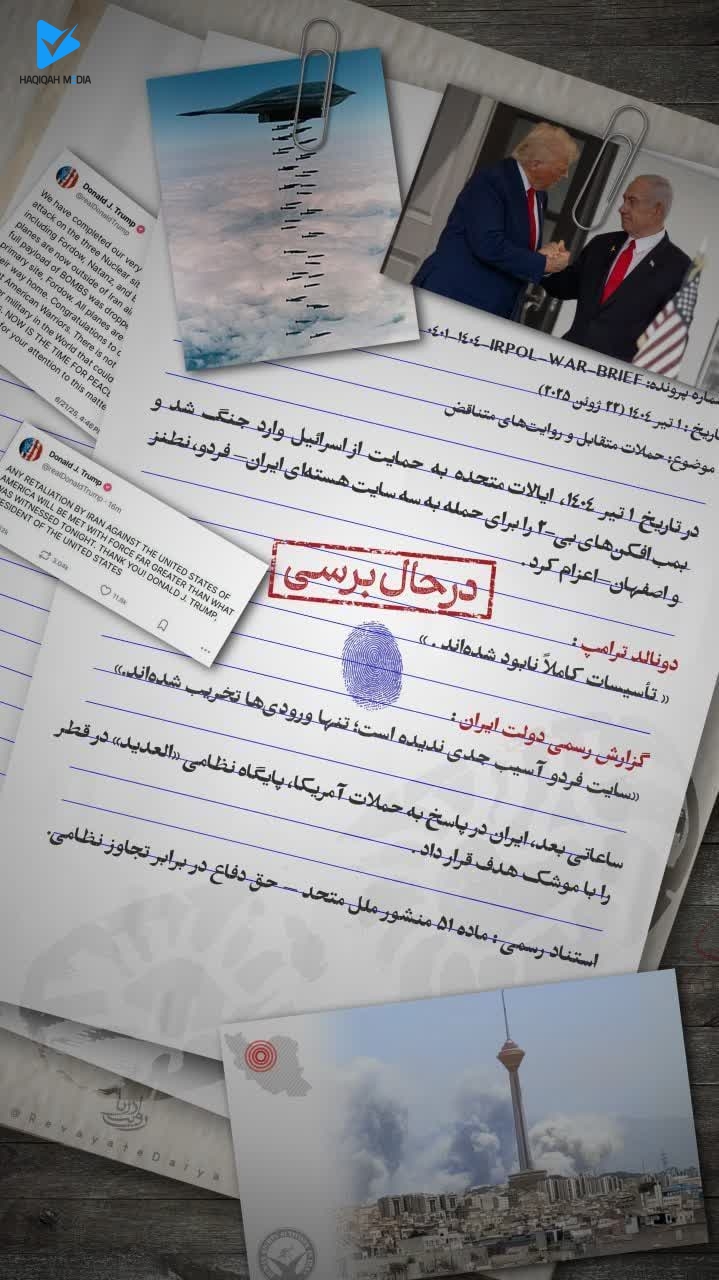 HAQIQAH MEDIA
Donald J. Trump
@realDonaldTrump
We have completed our very
attack on the three Nuclear
including Fordow, Natanz, and
planes are now outside of Iran
full payload of BOMBS was
primary site, Fordow. All planes are
way home. Congratulations to
American Warriors. There is not
military in the World that could
NOW IS THE TIME FOR
for your attention to this
6/21/25, 4:46
Donald J. Trump
@realDonaldTrump · 16m
ANY RETALIATION BY IRAN AGAINST THE UNITED STATES OF
AMERICA WILL BE MET WITH FORCE FAR GREATER THAN WHAT
WAS WITNESSED TONIGHT. THANK YOU! DONALD J. TRUMP,
PRESIDENT OF THE UNITED STATES
3.04k
11.8k
شماره پرونده: IRPOL-WAR-BRIEF-۱۴۰۴-۰۴۰۱
تاریخ: ۱ تیر ۱۴۰۴ (۲۲ ژوئن ۲۰۲۵)
موضوع: حملات متقابل و روایت‌های متناقض
در تاریخ ۱ تیر ۱۴۰۴، ایالات متحده به حمایت از اسرائیل وارد جنگ شد و
بمب‌افکن‌های بی-۲ را برای حمله به سه سایت هسته‌ای ایران– فردو، نطنز
و اصفهان– اعزام کرد.
درحال برسی
دونالد ترامپ:
« تأسیسات کاملاً نابود شده‌اند . »
گزارش رسمی دولت ایران :
«سایت فردو آسیب جدی ندیده است؛ تنها ورودی‌ها تخریب شده‌اند.»
ساعاتی بعد، ایران در پاسخ به حملات آمریکا، پایگاه نظامی «العدید» در قطر
را با موشک هدف قرار داد .
استناد رسمی : ماده ۵۱ منشور ملل متحد – حق دفاع در برابر تجاوز نظامی.
@RevayateDarya